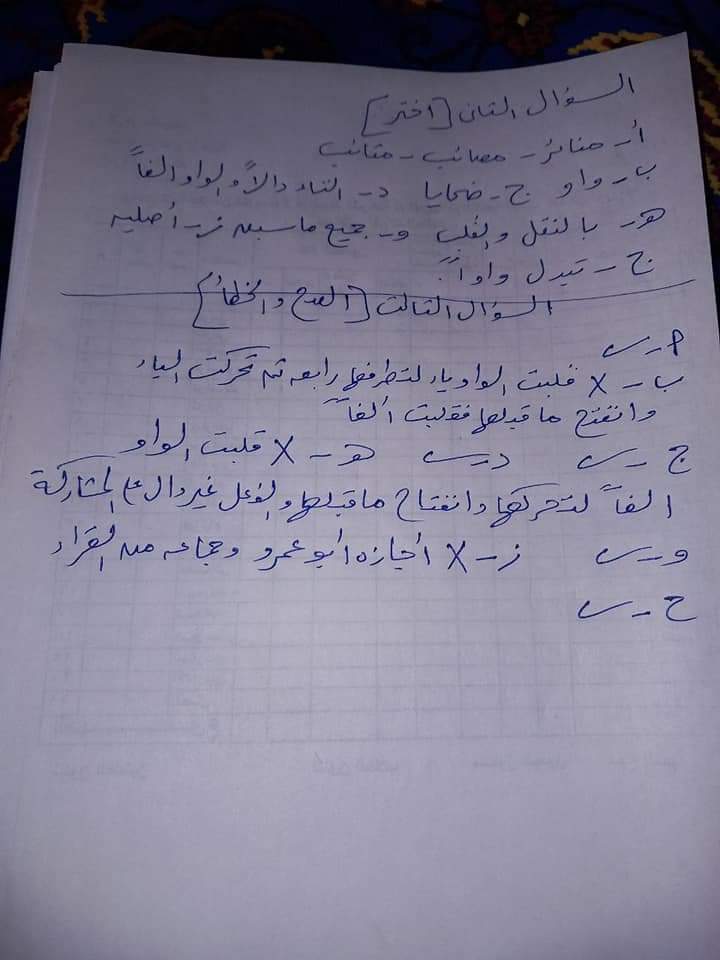 السؤال الثانى [اختر]
أ - منائر - مصائب - متائب
ب - واو ج - ضحايا د - التاء دالاً والواو الفاً
هـ - بالنقل والقلب و - جميع ماسبق ز - أصليه
ح - تبدل واواً
السؤال الثالث [الصح والخطأ]
ب - X قلبت الواو ياء لتطرفها رابعه ثم تحركت الياء
وانفتح ما قبلها فقلبت ألفاً
ج - د - هـ - X قلبت الواو
الفاً لتحركها وانفتاح ما قبلها والفعل غير دال على المشاركة
و - ز - X أجازه أبو عمرو وجماعه من القراء
ح -